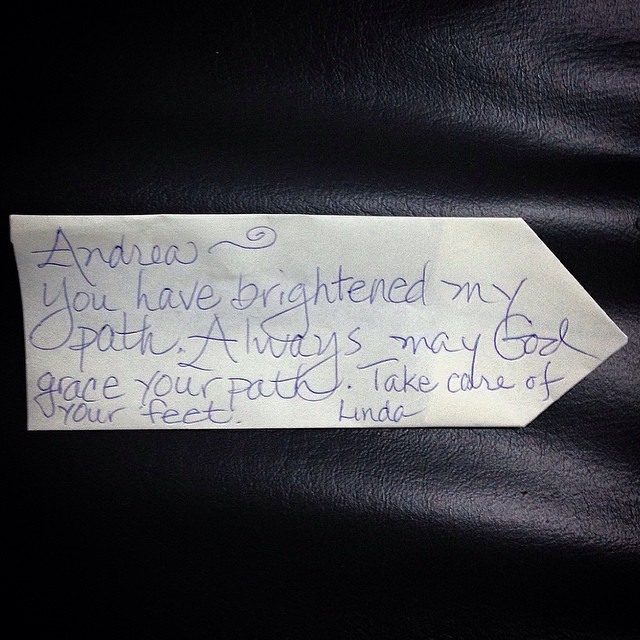 Andrea
You have brightened my
path. Always may God
grace your path. Take care of
your feet. Linda